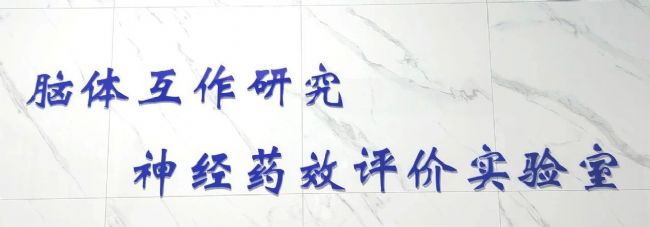 脑体互作研究
神经药效评价实验室